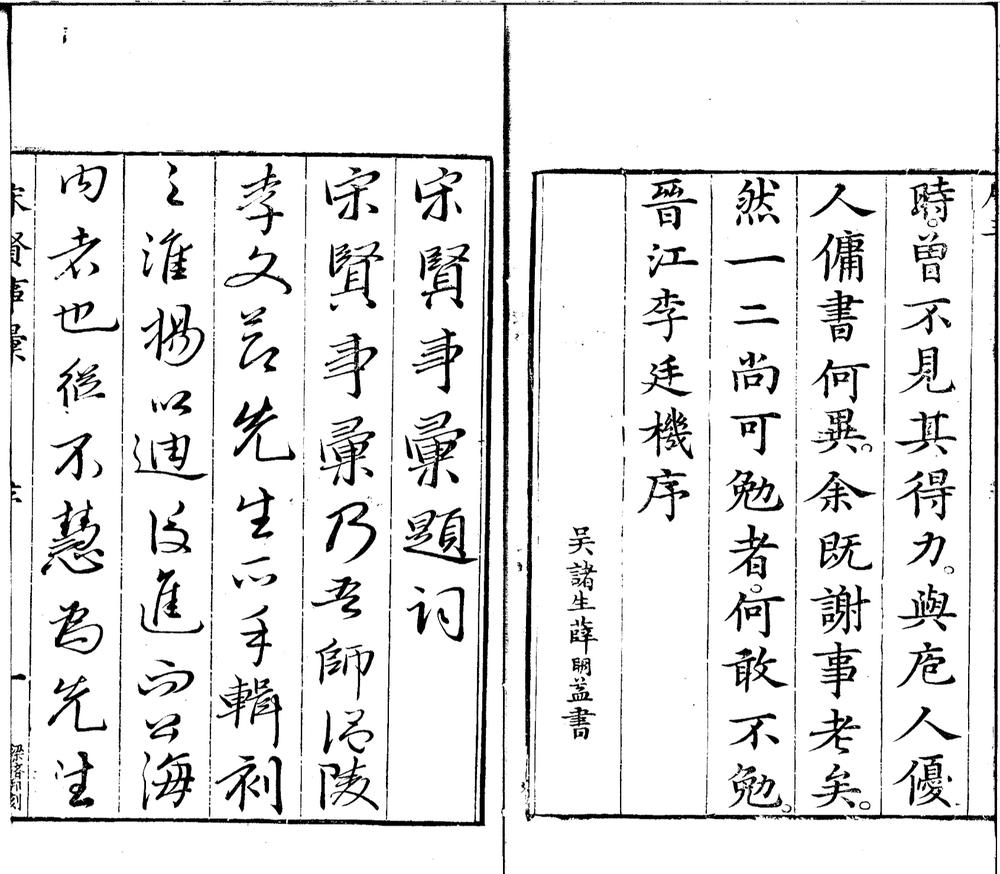 時。曾不見其得力。與庖人優
人傭書何異。余既謝事老矣。
然一二尚可勉者。何敢不勉。
晉江李廷機序
吳諸生薛明益書
宋賢事彙題詞
宋賢事彙乃吾師温陵
李文節先生所手輯刻
之淮揚以迪後進而公海
內者也從不慧為先生
宋賢事彙 序 一